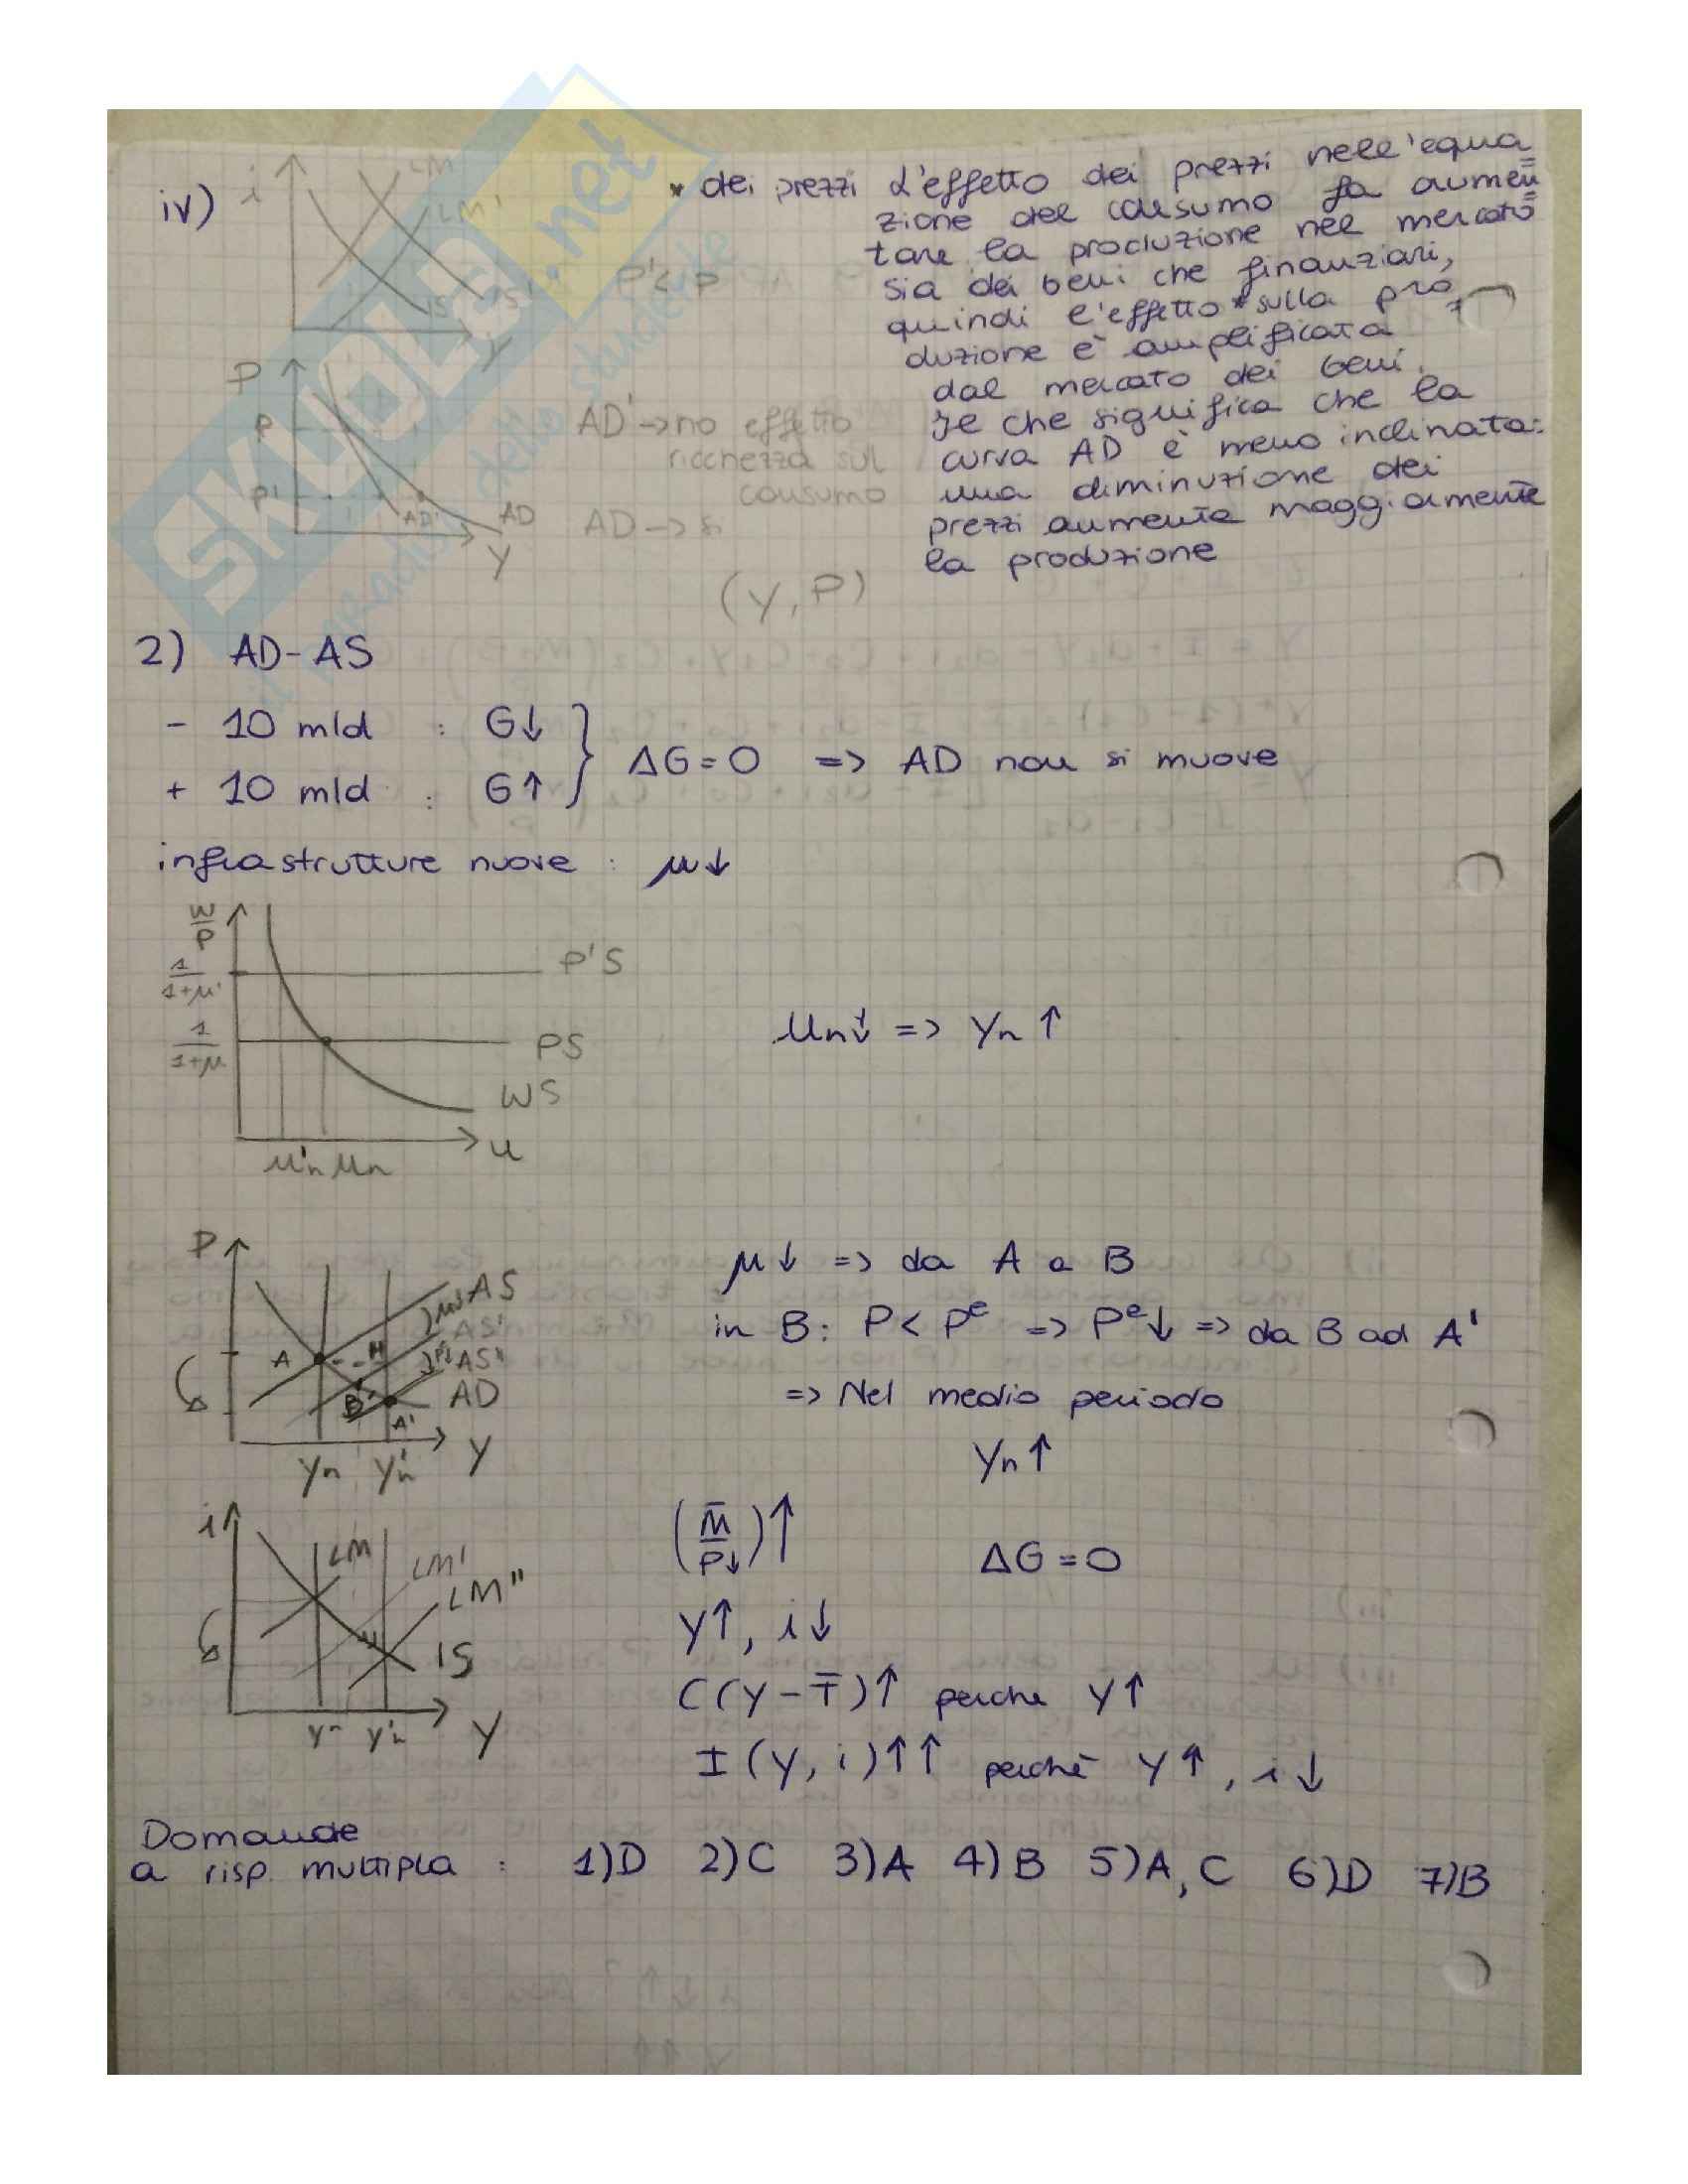 iv)
i
LM
LM'
IS
IS'
Y
P' < P
P
P
P'
AD'
AD
Y
AD' → no effetto
ricchezza sul
consumo
AD → sì
(Y, P)
* dei prezzi
L'effetto dei prezzi nell'equa
zione del consumo fa aumen
tare la produzione nel mercato
sia dei beni che finanziari,
quindi l'effetto * sulla pro
duzione è amplificata
dal mercato dei beni.
Il che significa che la
curva AD è meno inclinata:
una diminuzione dei
prezzi aumenta maggiormente
la produzione
2) AD-AS
- 10 mld : G↓
+ 10 mld : G↑
ΔG = 0 => AD non si muove
infrastrutture nuove : μ↓
W/P
1/1+μ'
1/1+μ
P'S
PS
WS
u
u'n un
un↓ => Yn↑
P
AS
AS'
AS"
A
B
A'
AD
Yn Y'n Y
μ↓ => da A a B
in B: P < Pᵉ => Pᵉ↓ => da B ad A'
=> Nel medio periodo
Yn↑
i
LM
LM'
LM"
IS
Yn Y'n Y
(M̄/P↓)↑
ΔG = 0
Y↑, i↓
C(Y-T̄)↑ perché Y↑
I(Y, i)↑↑ perché Y↑, i↓
Domande
a risp. multipla : 1)D 2)C 3)A 4)B 5)A,C 6)D 7)B
SKUOLA.net